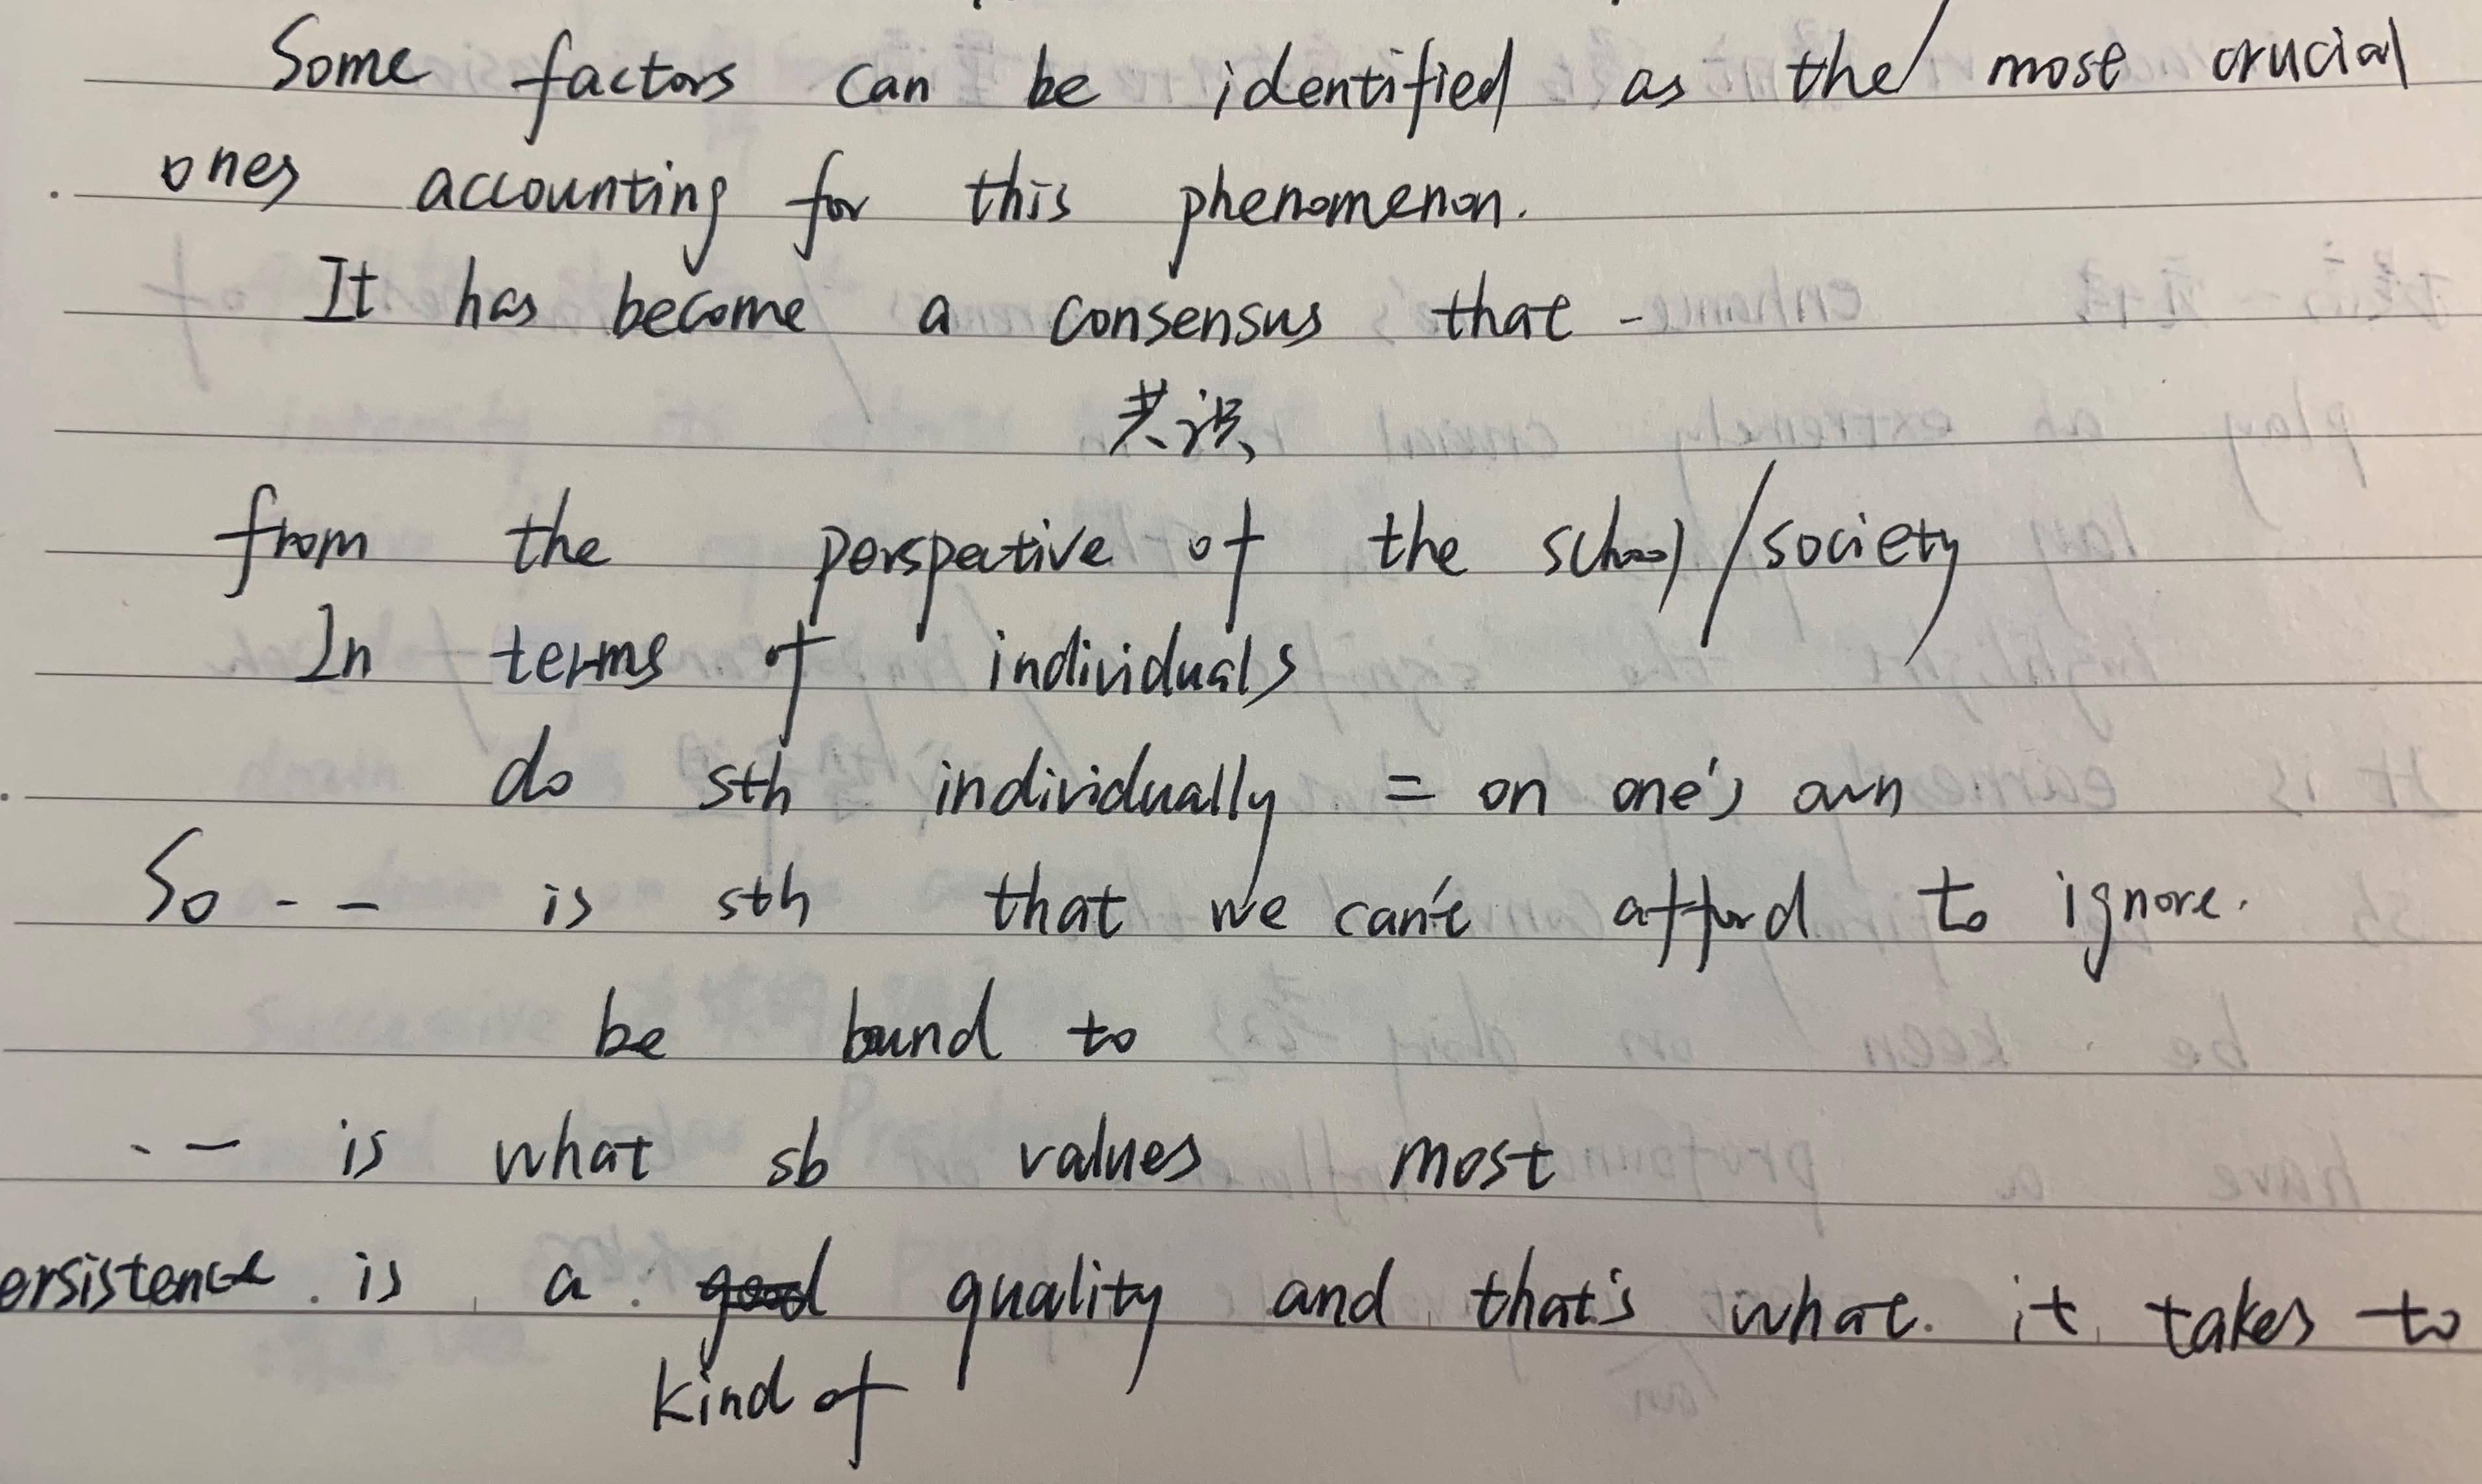 Some factors can be identified as the most crucial
ones accounting for this phenomenon.
It has become a consensus that -
共识
from the perspective of the school/society
In terms of individuals
do sth individually = on one's own
So - - is sth that we can't afford to ignore.
be bound to
- - is what sb values most
ersistence is a good quality and that's what it takes to
kind of